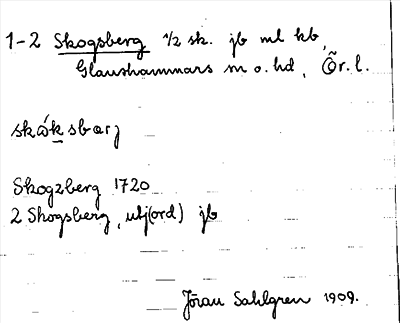 1-2 Skogsberg 1/2 sk. jb ml kb,
Glanshammars sn o. hd, Ör. l.
skåksbarj
Skogzberg 1720
2 Skogsberg, utj(ord) jb
Jöran Sahlgren 1909.